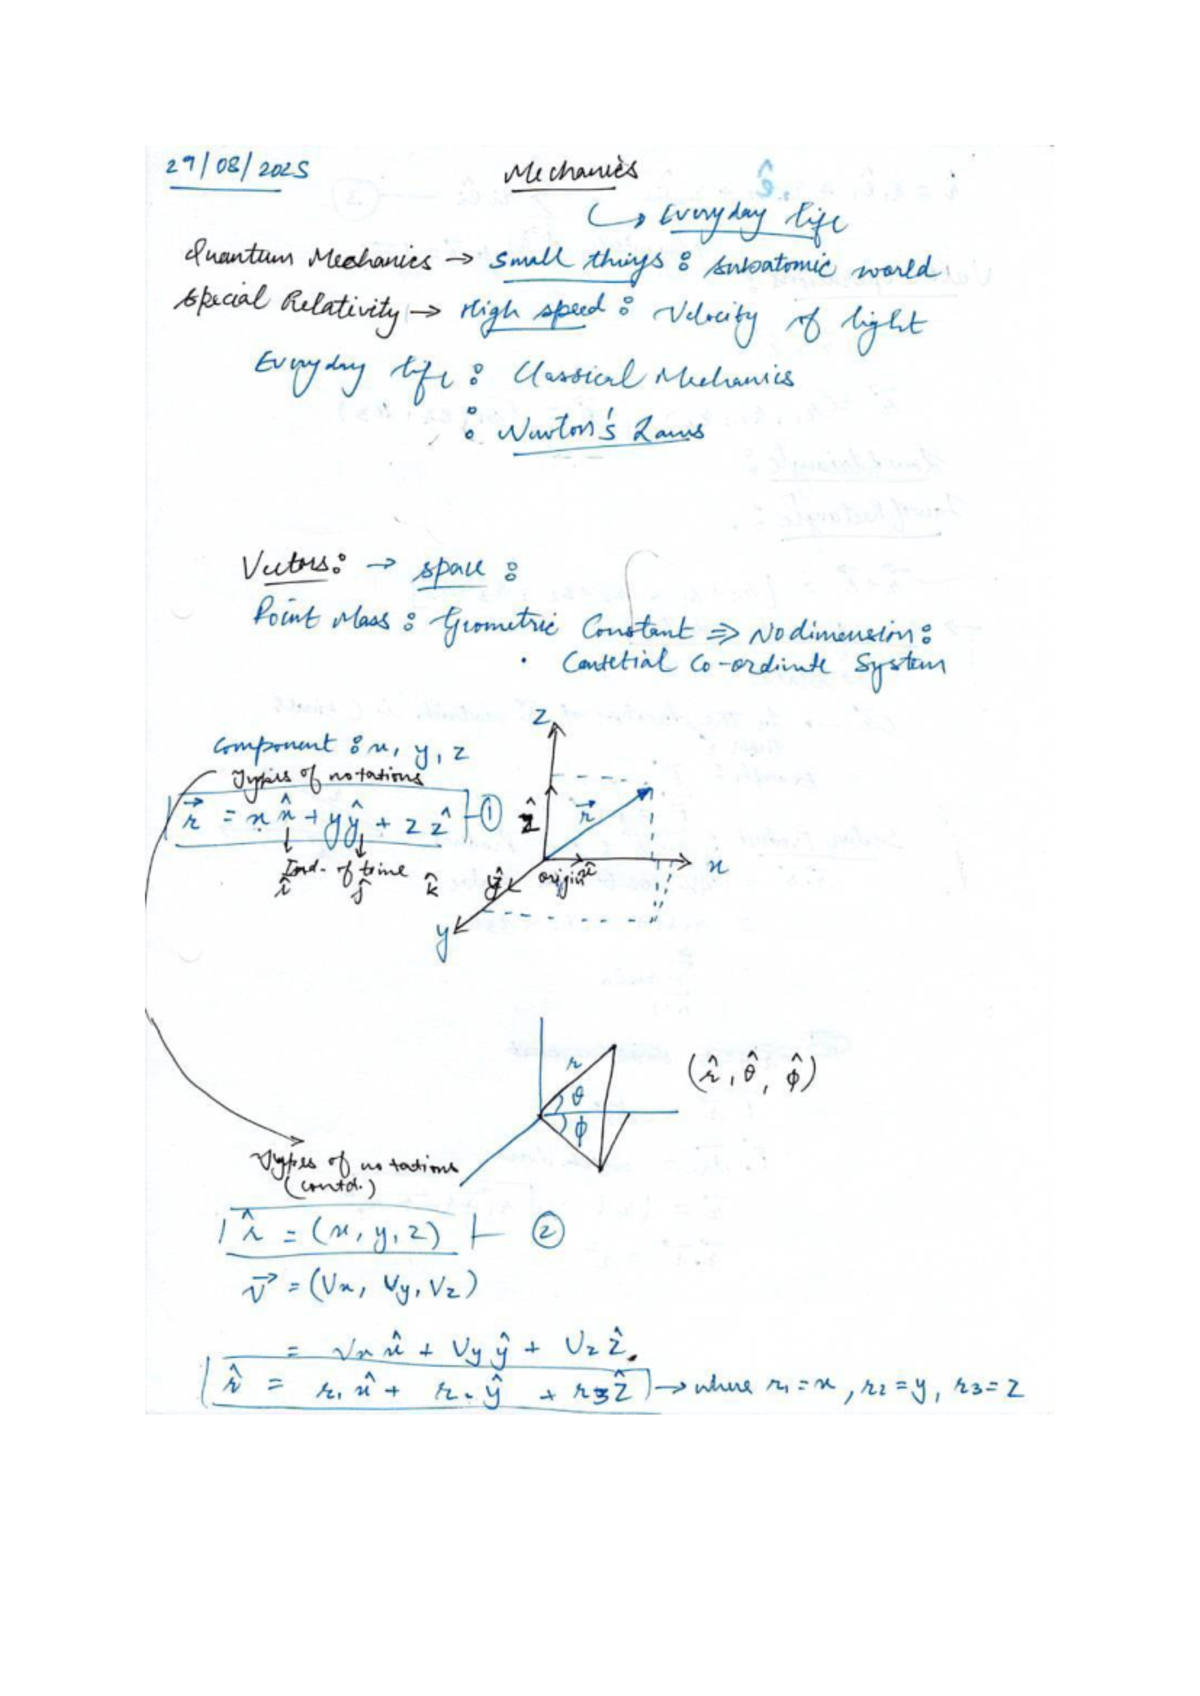 29/08/2025
Mechanics
↳ Everyday life
Quantum Mechanics → Small things : Subatomic world
Special Relativity → High speed : Velocity of light
Everyday life : Classical Mechanics
: Newton's Laws
Vectors: → space :
Point Mass : Geometric Constant ⇒ No dimension :
· Cartetial Co-ordinate System
Component : x, y, z
Types of notations
r⃗ = x x̂ + y ŷ + z ẑ ①
Ind. of time
î ĵ k̂
z
ẑ
r⃗
x
origin x̂
ŷ
y
r
θ
φ
(r̂, θ̂, φ̂)
Types of notations
(contd.)
r̂ = (x, y, z) ②
v⃗ = (Vx, Vy, Vz)
= Vx x̂ + Vy ŷ + Vz ẑ
r̂ = r1 x̂ + r2 ŷ + r3 ẑ → where r1 = x, r2 = y, r3 = z